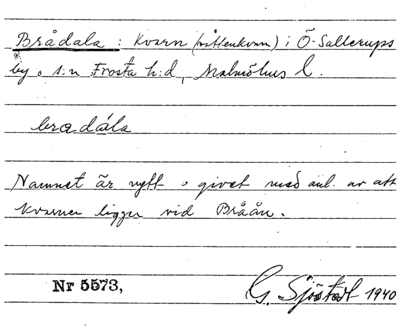 Brådala : Kvarn (vattenkvarn) i Ö-Sallerups
by o s:n Frosta h:d, Malmöhus l.
bradála
Namnet är nytt o givet med anl. av att
kvarnen ligger vid Bråån.
Nr 5573,
G. Sjöstedt 1940